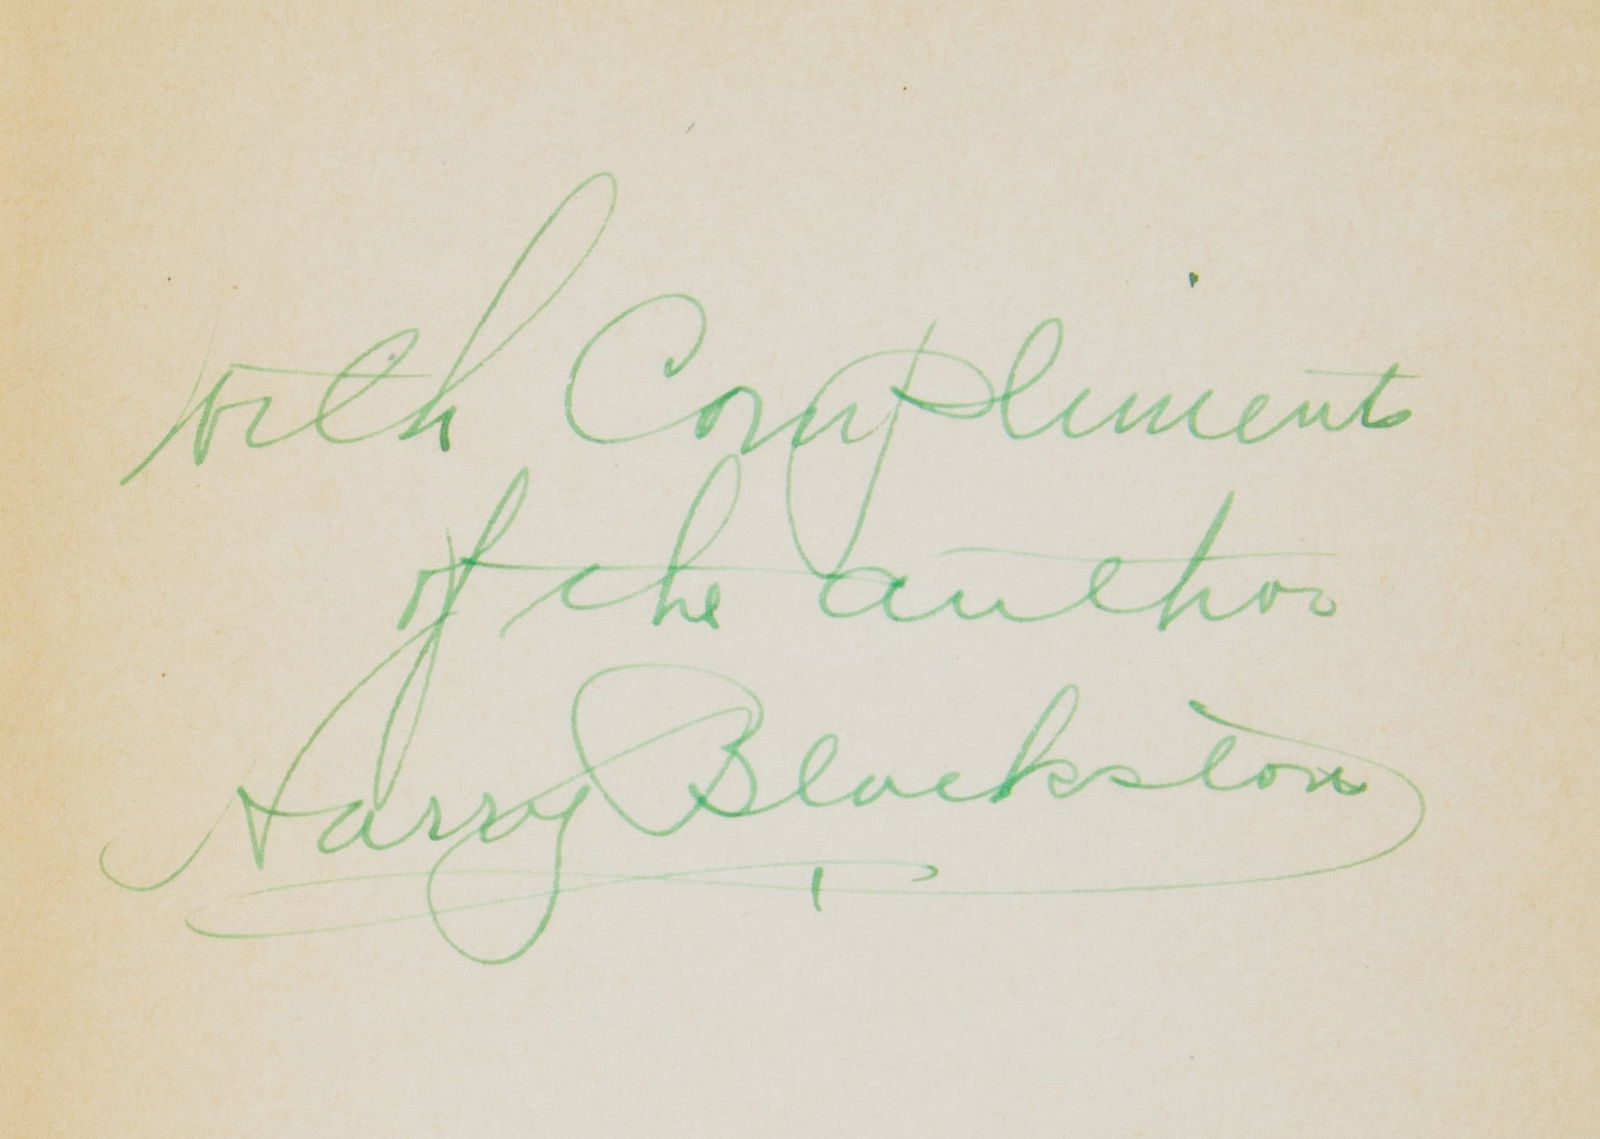 with Compliments
of the author
Harry Blackstone